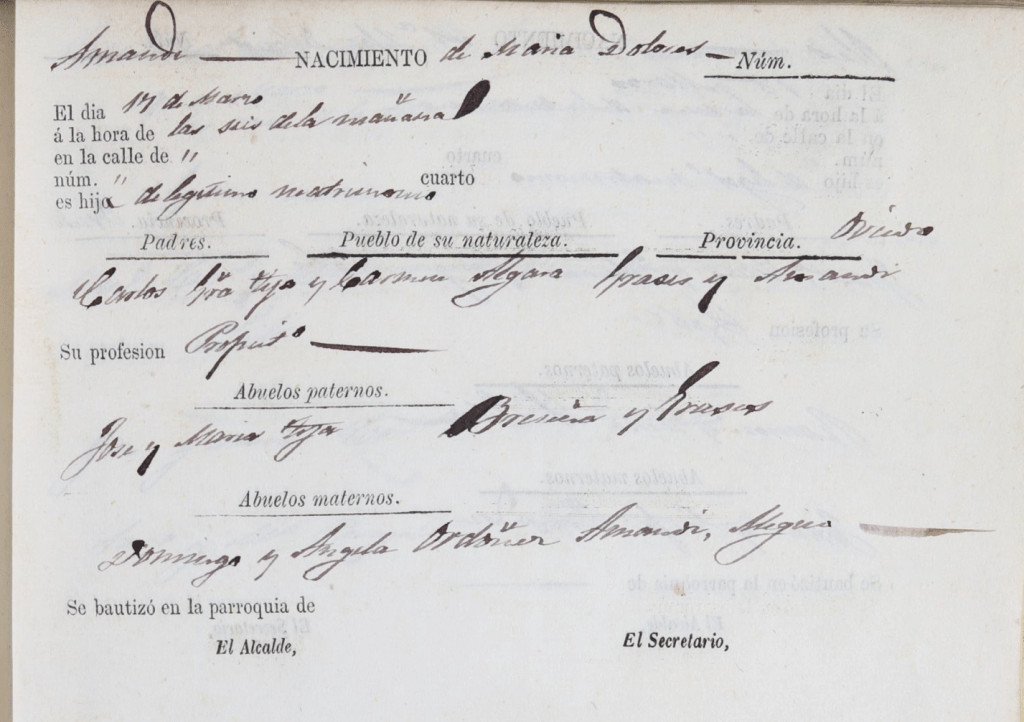 Amandi NACIMIENTO de Maria Dolores Núm.
El dia 17 de Marzo
á la hora de las seis de la mañana
en la calle de "
núm. " cuarto
es hija de legitimo matrimonio
Padres. Pueblo de su naturaleza. Provincia. Oviedo
Carlos y Carmen Amandi
Su profesion Propiet.o
Abuelos paternos.
Jose y Maria
Abuelos maternos.
Domingo y Angela Ordoñez Amandi,
Se bautizó en la parroquia de
El Alcalde, El Secretario,